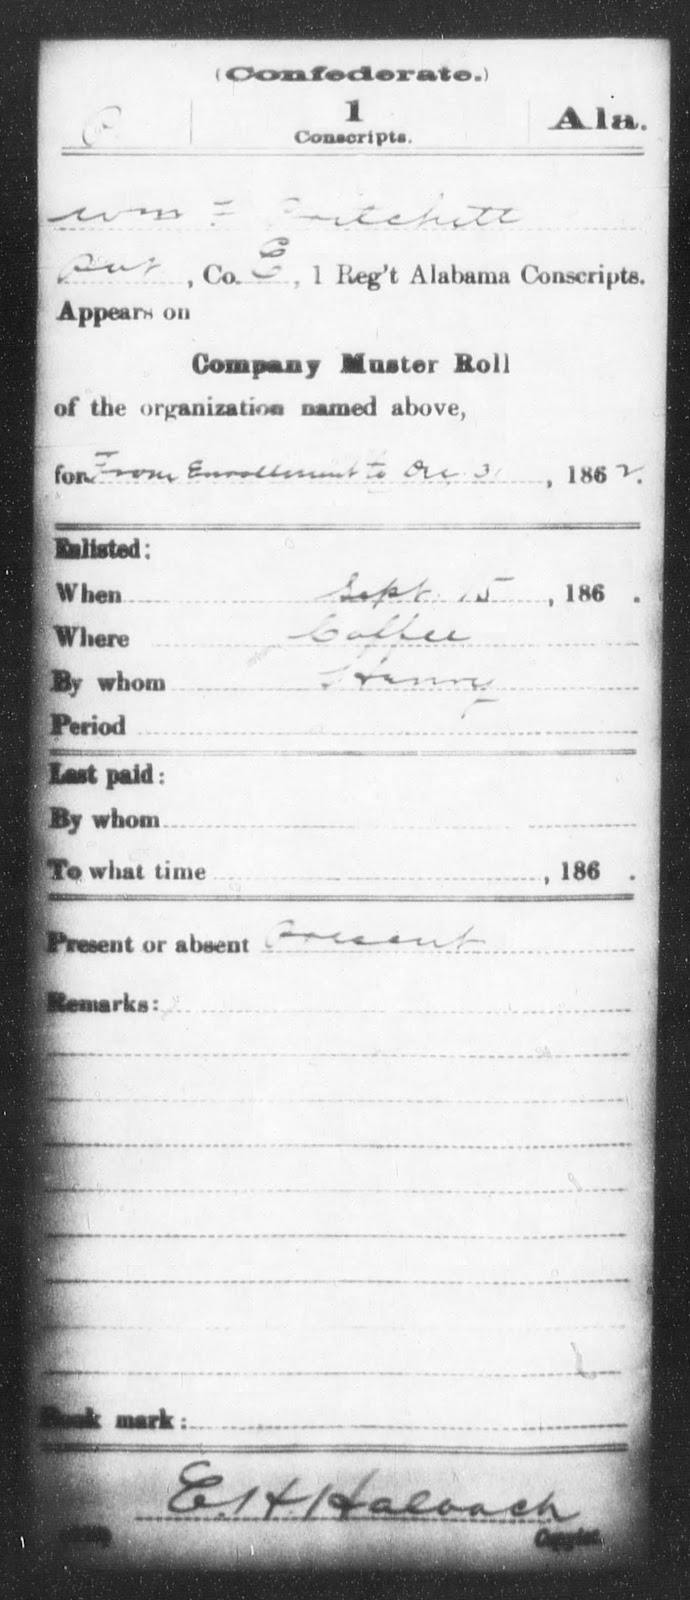 (Confederate.)
P 1 Ala.
Conscripts.
Wm F Pritchett
Pvt, Co. E, 1 Reg't Alabama Conscripts.
Appears on
Company Muster Roll
of the organization named above,
for From Enrollment to Dec 31, 1862.
Enlisted:
When Sept. 15, 186 .
Where Coffee
By whom Henry
Period
Last paid:
By whom
To what time , 186 .
Present or absent Present
Remarks:
Book mark:
E. H. Halbach
Copyist.